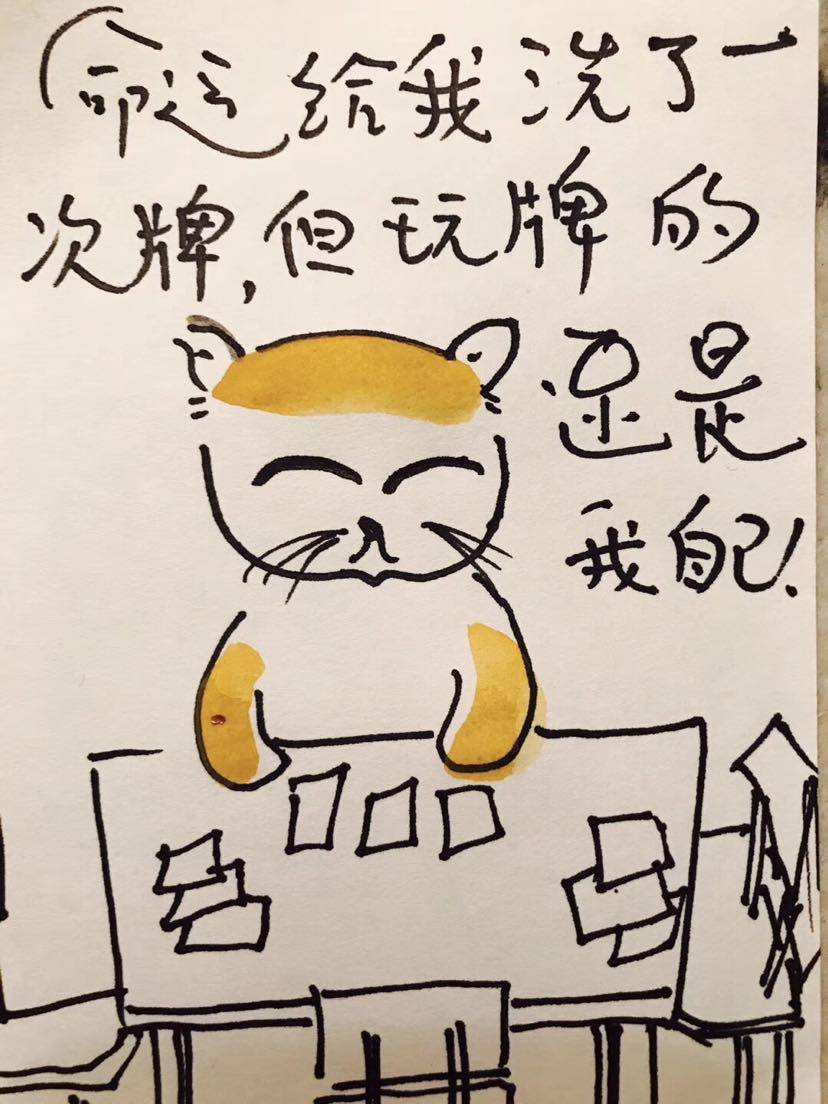 命运给我洗了一
次牌,但玩牌的
还是
我自己!